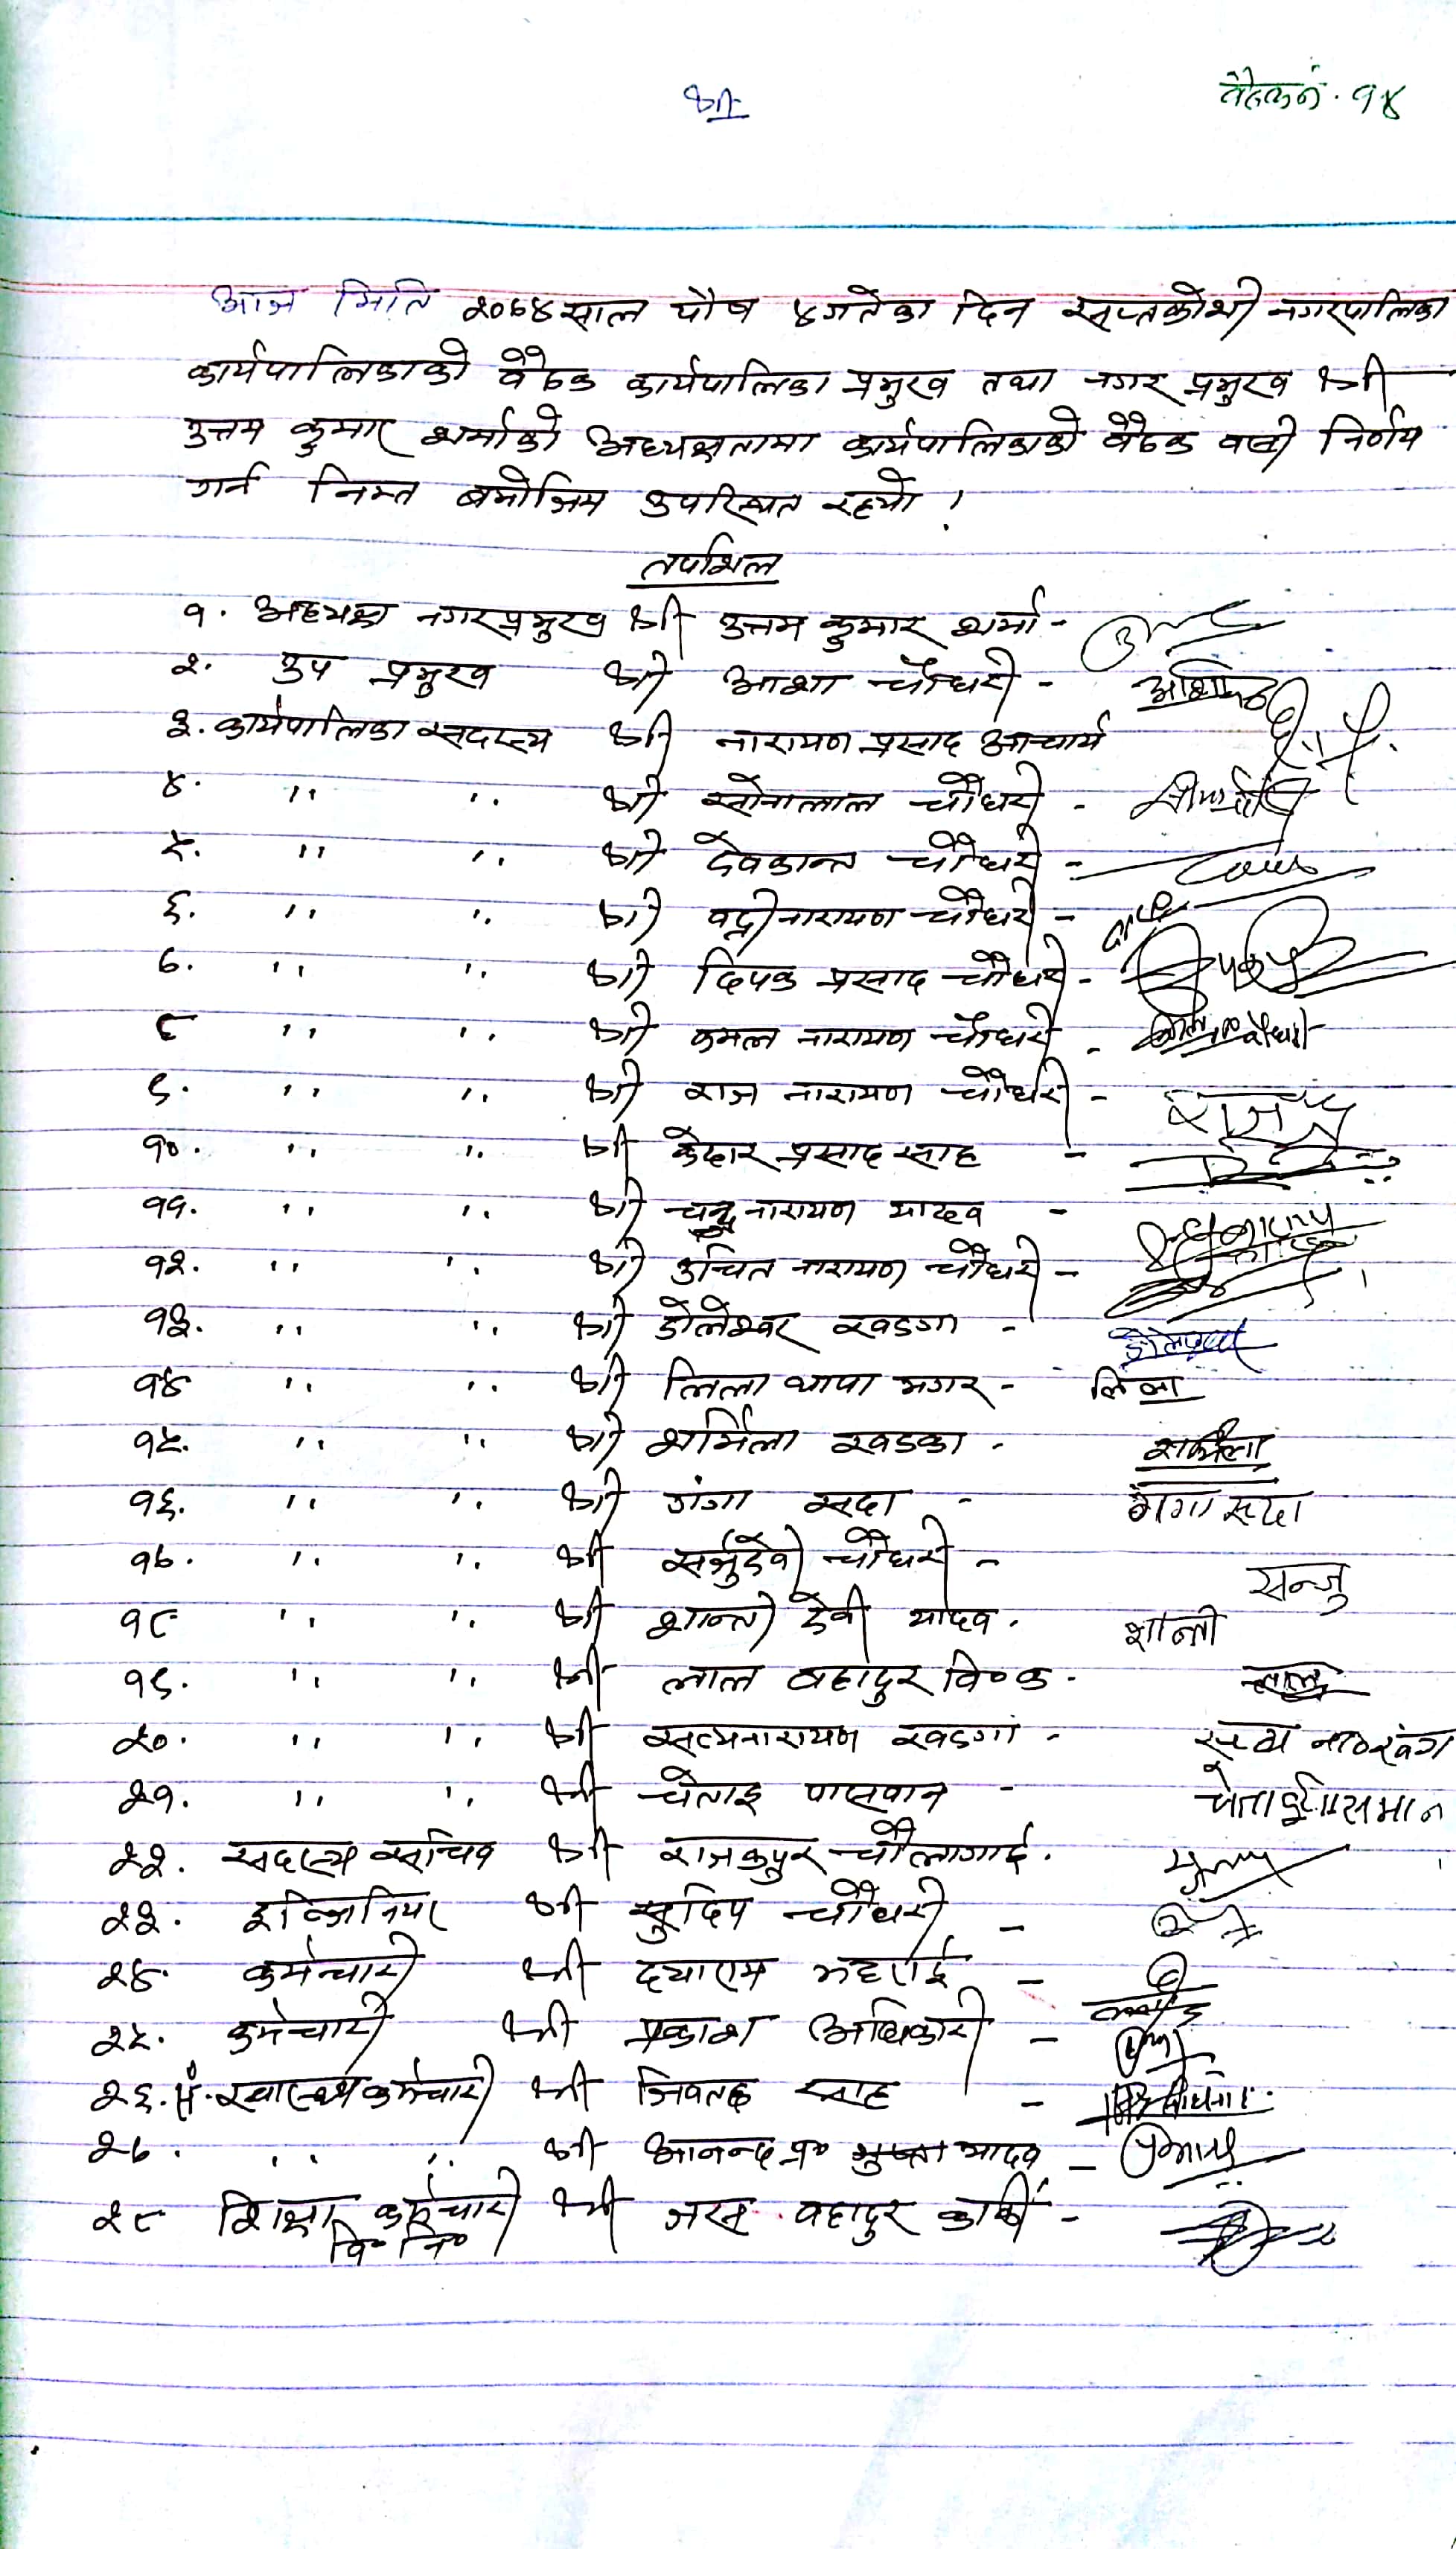 श्री
बैठक नं. १४
आज मिति २०७४ साल पौष ४ गतेका दिन सप्तकोशी नगरपालिका
कार्यपालिकाको बैठक कार्यपालिका प्रमुख तथा नगर प्रमुख श्री
उत्तम कुमार शर्माको अध्यक्षतामा कार्यपालिकाको बैठक वसी निर्णय
गर्न निम्न बमोजिम उपस्थित रहयो ।
तपशिल
१. अध्यक्ष नगर प्रमुख श्री उत्तम कुमार शर्मा -
२. उप प्रमुख श्री आशा चौधरी -
३. कार्यपालिका सदस्य श्री नारायण प्रसाद आचार्य
४. '' '' श्री सोनालाल चौधरी -
५. '' '' श्री देवकान्त चौधरी -
६. '' '' श्री वद्रीनारायण चौधरी -
७. '' '' श्री दिपक प्रसाद चौधरी -
८ '' '' श्री कमल नारायण चौधरी -
९. '' '' श्री राज नारायण चौधरी -
१०. '' '' श्री केदार प्रसाद साह -
११. '' '' श्री चन्द्र नारायण यादव -
१२. '' '' श्री उचित नारायण चौधरी -
१३. '' '' श्री डोलेश्वर खडगा -
१४ '' '' श्री लिला थापा मगर - लिला
१५. '' '' श्री शर्मिला खडका - शर्मिला
१६. '' '' श्री गंगा सदा - गंगा सदा
१७. '' '' श्री सर्जुदेवी चौधरी - सन्जु
१८ '' '' श्री शान्ती देवी यादव. शान्ती
१९. '' '' श्री लाल बहादुर वि०क. लाल
२०. '' '' श्री सत्यनारायण खडगा -
२१. '' '' श्री चेताइ पासवान -
२२. सदस्य सचिव श्री राजकपुर चौलागाई.
२३. इन्जिनियर श्री सुदिप चौधरी -
२४. कर्मचारी श्री दयाराम भट्टराई -
२५. कर्मचारी श्री प्रकाश अधिकारी -
२६. स्वास्थ्य कर्मचारी श्री जिवनाथ साह -
२७. '' '' श्री आनन्द प्र० यादव -
२८ शिक्षा कर्मचारी श्री जरस बहादुर कार्की -
वि० नि०